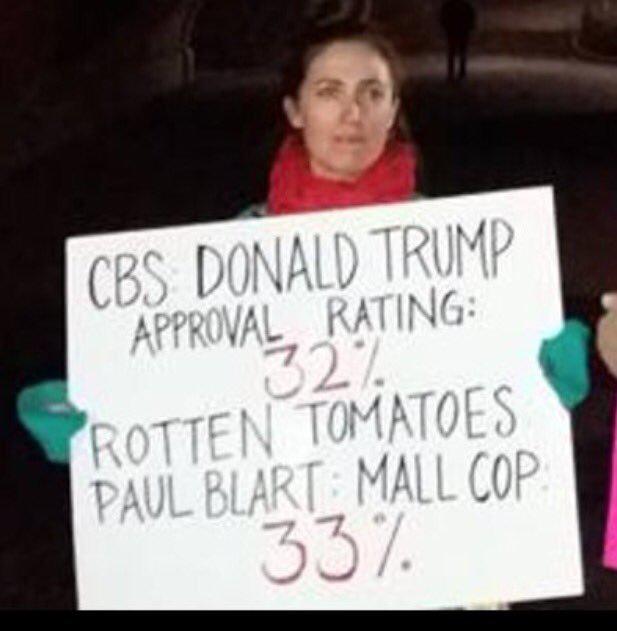 CBS: DONALD TRUMP
APPROVAL RATING:
32%
ROTTEN TOMATOES
PAUL BLART: MALL COP:
33%